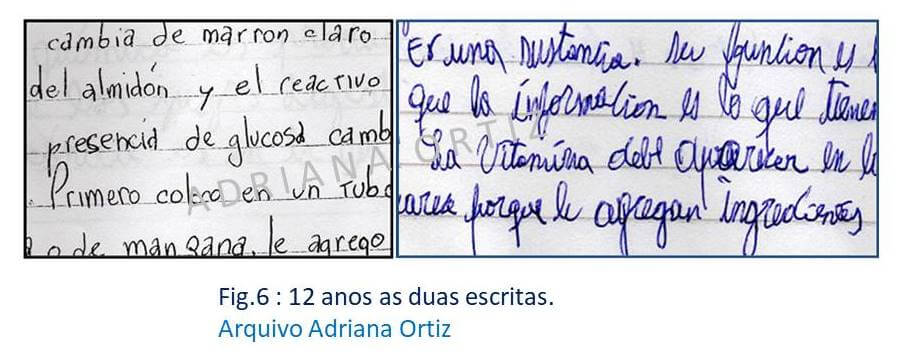 cambia de marron claro
del almidón y el reactivo
presencia de glucosa camb
. Primero coloco en un tubo
o de manzana, le agrego
Es una sustancia. su funtion es
que la information es lo que tienen
La Vitamina debe aparecer en l
ares porque le agregan ingredientes
ADRIANA ORTIZ
Fig.6 : 12 anos as duas escritas.
Arquivo Adriana Ortiz